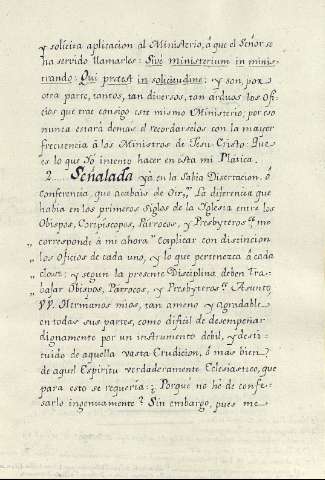 y solicita aplicacion al Ministerio, á que el Señor se
ha servido llamarles: Sivè ministerium in minis-
trando: Qui præest in solicitudine: y son, por
otra parte, tantos, tan diversos, tan arduos los Ofi-
cios que trae consigo este mismo Ministerio; por eso
nunca estará demás el recordarselos con la mayor
frecuencia á los Ministros de Jesu-Cristo. Que
es lo que Yo intento hacer en ésta mi Plática.
2.....Señalada yá en la Sabia Disertacion, ó
conferencia, que acabais de Oir, La diferencia que
habia en los primeros Siglos de la Iglesia entre los
Obispos, Corepiscopos, Parrocos, y Presbyteros me
„ corresponde á mi ahora Explicar con distincion
„ los oficios de cada uno, y lo que pertenezca á cada
„ clase; y segun la presente Disciplina deben Tra-
„ bajar Obispos, Parrocos, y Presbyteros. Asunto
VV. Hermanos mios, tan ameno y agradable
en todas sus partes, como dificil de desempeñar
dignamente por un instrumento debil, y desti-
tuido de aquella vasta Erudicion, ó mas bien
de aquel Espiritu verdaderamente Eclesiastico, que
para esto se requeria: ¿Porqué no hé de confe-
sarlo ingenuamente? Sin embargo, pues me